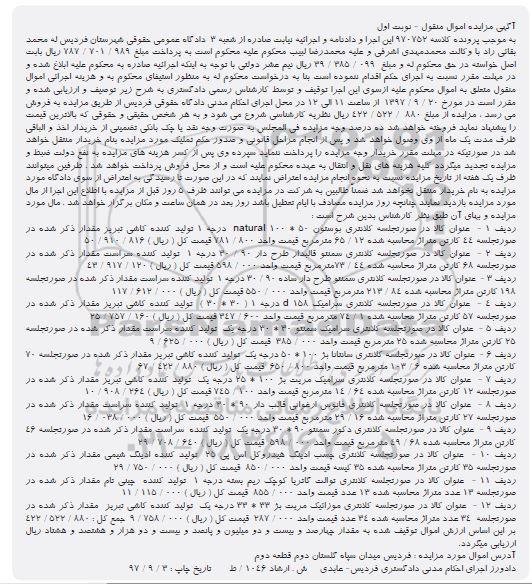 آگهی مزایده اموال منقول - نوبت اول
به موجب پرونده کلاسه ۹۷۰۷۵۲ این اجرا و دادنامه و اجرائیه نیابت صادره از شعبه ۳ دادگاه عمومی حقوقی شهرستان فردیس له محمد
بقائی راد با وکالت محمدمهدی اشرفی و علیه محمدرضا لبیب محکوم علیه محکوم است به پرداخت مبلغ ۹۸۹ / ۷۰۱ / ۷۸۷ ریال بابت
اصل خواسته در حق محکوم له و مبلغ ۰۹۹ / ۳۸۵ / ۳۹ ریال نیم عشر دولتی با توجه به اینکه اجرائیه صادره به محکوم علیه ابلاغ شده و
در مهلت مقرر نسبت به اجرای حکم اقدام ننموده است بنا به درخواست محکوم له به منظور استیفای محکوم به و هزینه اجرائی اموال
منقول متعلق به اموال محکوم علیه ازسوی این اجرا توقیف و توسط کارشناس رسمی دادگستری به شرح زیر توصیف و ارزیابی شده و
مقرر است در مورخ ۲۰ / ۹ / ۱۳۹۷ از ساعت ۱۱ الی ۱۲ در محل اجرای احکام مدنی دادگاه حقوقی فردیس از طریق مزایده به فروش
می رسد . مزایده از مبلغ ۸۸۰ / ۵۲۲ / ۴۲۲ ریال نظریه کارشناسی شروع می شود و به هر شخص حقیقی و حقوقی که بالاترین قیمت
را پیشنهاد نماید فروخته خواهد شد ده درصد وجه مزایده فی المجلس به صورت وجه نقد یا چک بانکی تضمینی از خریدار اخذ و الباقی
ظرف مدت یک ماه از وی وصول خواهد شد و پس از انجام مراحل قانونی و صدور حکم تملیک مورد مزایده بنام خریدار منتقل خواهد
شد در صورتیکه در مهلت مقرر خریدار وجه مزایده را پرداخت ننماید سپرده وی پس از کسر هزینه های مزایده به نفع دولت ضبط و
مزایده تجدید میگردد کلیه هزینه های نقل و انتقال به عهده محکوم علیه است و از محل فروش پرداخت خواهد شد . طرفین میتوانند
ظرف یک هفته از تاریخ مزایده نسبت به نحوه انجام مزایده اعتراض نمایند که در این صورت تا رسیدگی به اعتراض از سوی دادگاه مورد
مزایده به نام خریدار منتقل نخواهد شد ضمناً طالبین به شرکت در مزایده می توانند ظرف ۵ روز قبل از مزایده با اطلاع این اجرا از مال
مورد مزایده بازدید نمایند چنانچه روز مزایده مصادف با ایام تعطیل باشد روز بعد در همان ساعت و مکان برگزار خواهد شد . مال مورد
مزایده و بهای آن طبق نظر کارشناس بدین شرح است :
ردیف ۱ - عنوان کالا در صورتجلسه کلانتری بوستون ۵۰ * ۱۰۰ natural درجه ۱ تولید کننده کاشی تبریز مقدار ذکر شده در
صورتجلسه ۴۴ کارتن متراژ محاسبه شده ۱۲ / ۶۵ مترمربع قیمت واحد ۸۰۰ / ۷۸۱ قیمت کل ( ریال ) ۸۱۶ / ۹۱۰ / ۵۰
ردیف ۲ - عنوان کالا در صورتجلسه کلانتری سمنتو قالبدار طرح دار ۹۰ * ۳۰ درجه ۱ تولید کننده سراست مقدار ذکر شده در
صورتجلسه ۶۸ کارتن متراژ محاسبه شده ۴۴ / ۷۳ مترمربع قیمت واحد ۰۰۰ / ۵۹۸ قیمت کل ( ریال ) ۱۲۰ / ۹۱۷ / ۴۳
ردیف ۳ - عنوان کالا در صورتجلسه کلانتری سمنتو طرح دار ساده ۹۰ * ۳۰ درجه ۱ تولید کننده سراست مقدار ذکر شده در صورتجلسه
۱۹۸ کارتن متراژ محاسبه شده ۸۴ / ۲۱۳ مترمربع قیمت واحد ۰۰۰ / ۵۵۰ قیمت کل ( ریال ) ۰۰۰ / ۶۱۲ / ۱۱۷
ردیف ۴ - عنوان کالا در صورتجلسه کلانتری سرامیک d ۱۵۸ درجه ۱ ( ۳۰ * ۳۰ ) تولید کننده کاشی تبریز مقدار ذکر شده در
صورتجلسه ۵۷ کارتن متراژ محاسبه شده ۱ / ۷۴ مترمربع قیمت واحد ۶۰۰ / ۳۴۷ قیمت کل ( ریال ) ۱۶۰ / ۷۵۷ / ۲۵
ردیف ۵ - عنوان کالا در صورتجلسه کلانتری سرامیک سمنتو ۳۰ * ۲۰ درجه یک تولید کننده سراست مقدار ذکر شده در صورتجلسه
۲۵ کارتن متراژ محاسبه شده ۲۵ مترمربع قیمت واحد ۰۰۰ / ۳۸۵ قیمت کل ( ریال ) ۰۰۰ / ۶۲۵ / ۹
ردیف ۶ - عنوان کالا در صورتجلسه کلانتری سانتانا بژ ۱۰۰ * ۵۰ درجه یک تولید کننده کاشی تبریز مقدار ذکر شده در صورتجلسه ۷۰
کارتن متراژ محاسبه شده ۶ / ۱۰۳ مترمربع قیمت واحد ۸۰۰ / ۶۵۰ قیمت کل ( ریال ) ۸۸۰ / ۴۲۲ / ۶۷
ردیف ۷ - عنوان کالا در صورتجلسه کلانتری سرامیک مریت بژ ۱۰۰ * ۲۵ درجه یک تولید کننده کاشی تبریز مقدار ذکر شده در
صورتجلسه ۱۲ کارتن متراژ محاسبه شده ۶۴ / ۱۴ مترمربع قیمت واحد ۱۰۰ / ۷۴۵ قیمت کل ( ریال ) ۲۶۴ / ۹۰۸ / ۱۰
ردیف ۸ - عنوان کالا در صورتجلسه کلانتری فانوس ارغوانی قالب دار ۹۰ * ۳۰ درجه ۱ تولید کننده سراست مقدار ذکر شده در
صورتجلسه ۲۷ کارتن متراژ محاسبه شده ۱۶ / ۲۹ مترمربع قیمت واحد ۰۰۰ / ۵۵۰ قیمت کل ( ریال ) ۰۰۰ / ۰۳۸ / ۱۶
ردیف ۹ - عنوان کالا در صورتجلسه کلانتری دکور سمنتو ۹۰ * ۳۰ درجه یک تولید کننده سراست مقدار ذکر شده در صورتجلسه ۴۶
کارتن متراژ محاسبه شده ۶۸ / ۴۹ متر مربع قیمت واحد ۰۰۰ / ۵۹۸ قیمت کل ( ریال ) ۶۴۰ / ۷۰۸ / ۲۹
ردیف ۱۰ - عنوان کالا در صورتجلسه کلانتری چسب ادینگ هیدروکل اس پی ۲۵ تولید کننده ادینگ شیمی مقدار ذکر شده در
صورتجلسه ۳۵ کارتن متراژ محاسبه شده ۳۵ کیسه قیمت واحد ۰۰۰ / ۸۵۰ قیمت کل ( ریال ) ۰۰۰ / ۷۵۰ / ۲۹
ردیف ۱۱ - عنوان کالا در صورتجلسه کلانتری توالت گاتریا کوچک ریم بسته درجه ۱ تولید کننده چینی نام مقدار ذکر شده در
صورتجلسه ۱۳ عدد متراژ محاسبه شده ۱۳ عدد قیمت واحد ۰۰۰ / ۸۵۵ قیمت کل ( ریال ) ۰۰۰ / ۱۱۵ / ۱۱
ردیف ۱۲ - عنوان کالا در صورتجلسه کلانتری موزائیک مریت بژ ۳۳ * ۳۳ درجه یک تولید کننده کاشی تبریز مقدار ذکر شده در
صورتجلسه ۳۴ عدد متراژ محاسبه شده ۳۴ عدد قیمت واحد ۰۰۰ / ۲۸۷ قیمت کل ( ریال ) ۰۰۰ / ۷۵۸ / ۹ جمع کل : ۸۸۰ / ۵۲۲ / ۴۲۲
بر این اساس ارزش اموال توقیف شده به مقدار چهارصد و بیست و دو میلیون و پانصد و بیست و دو هزار و هشتصد و هشتاد ریال
ارزیابی میگردد.
آدرس اموال مورد مزایده : فردیس میدان سپاه گلستان دوم قطعه دوم
دادورز اجرای احکام مدنی دادگستری فردیس- عابدی ش . ارشاد ۱۰۴۶ / ط تاریخ چاپ : ۳ / ۹ / ۹۷